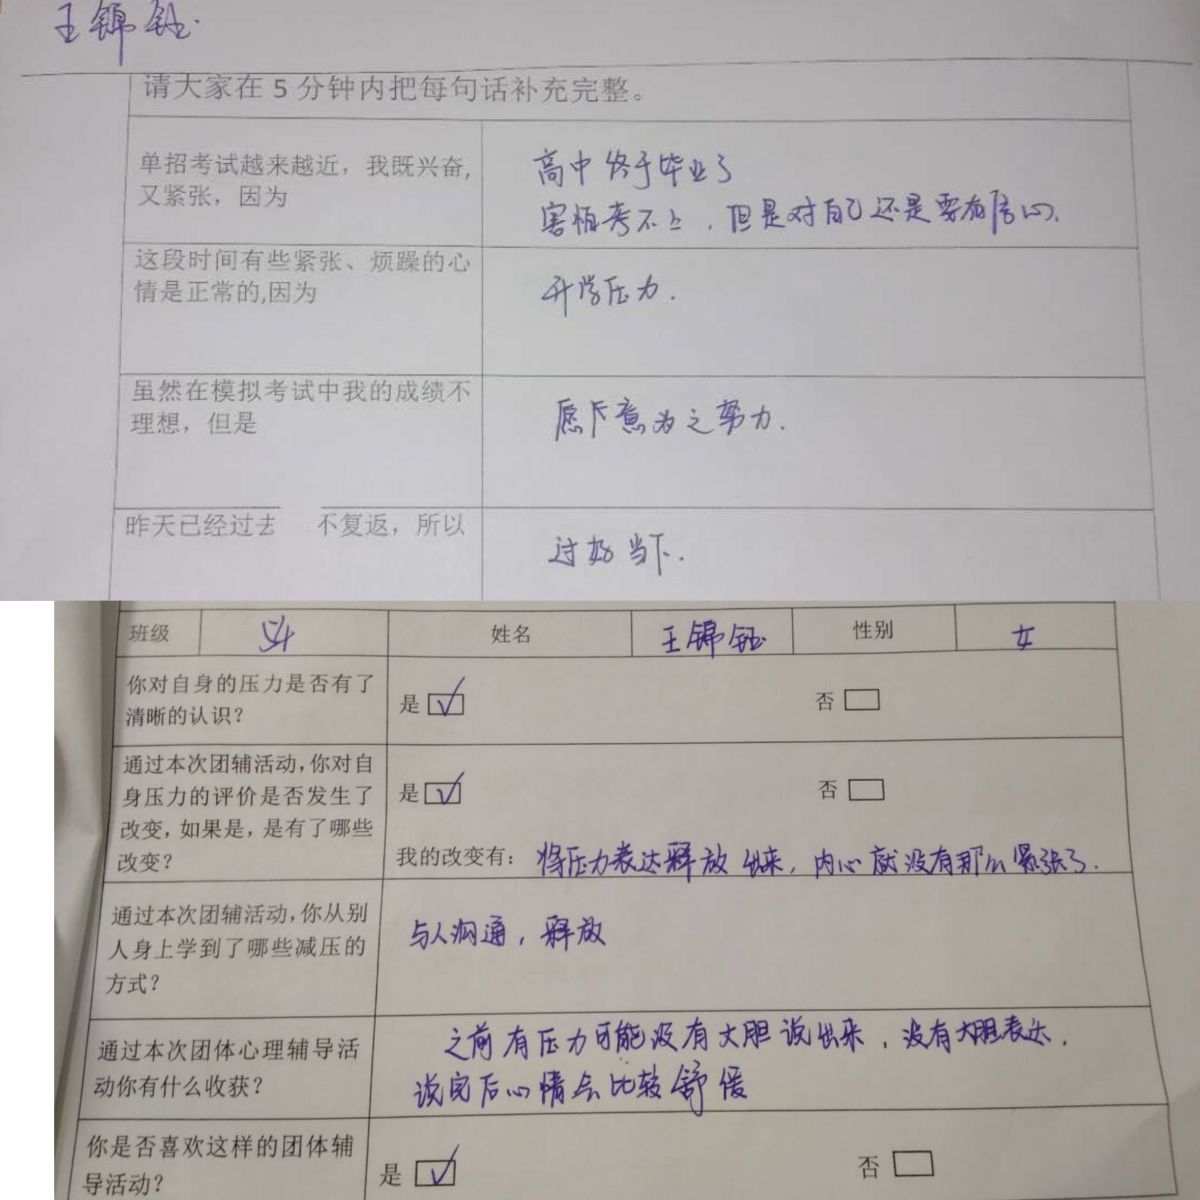 王锦钰.
请大家在 5 分钟内把每句话补充完整。
单招考试越来越近，我既兴奋,
又紧张，因为
高中终于毕业了
害怕考不上，但是对自己还是要有信心.
这段时间有些紧张、烦躁的心
情是正常的,因为
升学压力.
虽然在模拟考试中我的成绩不
理想，但是
愿意为之努力.
昨天已经过去 不复返，所以
过好当下.
班级
姓名 王锦钰 性别 女
你对自身的压力是否有了
清晰的认识？
是 ✓ 否
通过本次团辅活动，你对自
身压力的评价是否发生了
改变，如果是，是有了哪些
改变？
是 ✓ 否
我的改变有：将压力表达释放出来，内心就没有那么紧张了.
通过本次团辅活动，你从别
人身上学到了哪些减压的
方式？
与人沟通，释放
通过本次团体心理辅导活
动你有什么收获？
之前有压力可能没有大胆说出来，没有大胆表达.
说完后心情会比较舒缓
你是否喜欢这样的团体辅
导活动？
是 ✓ 否